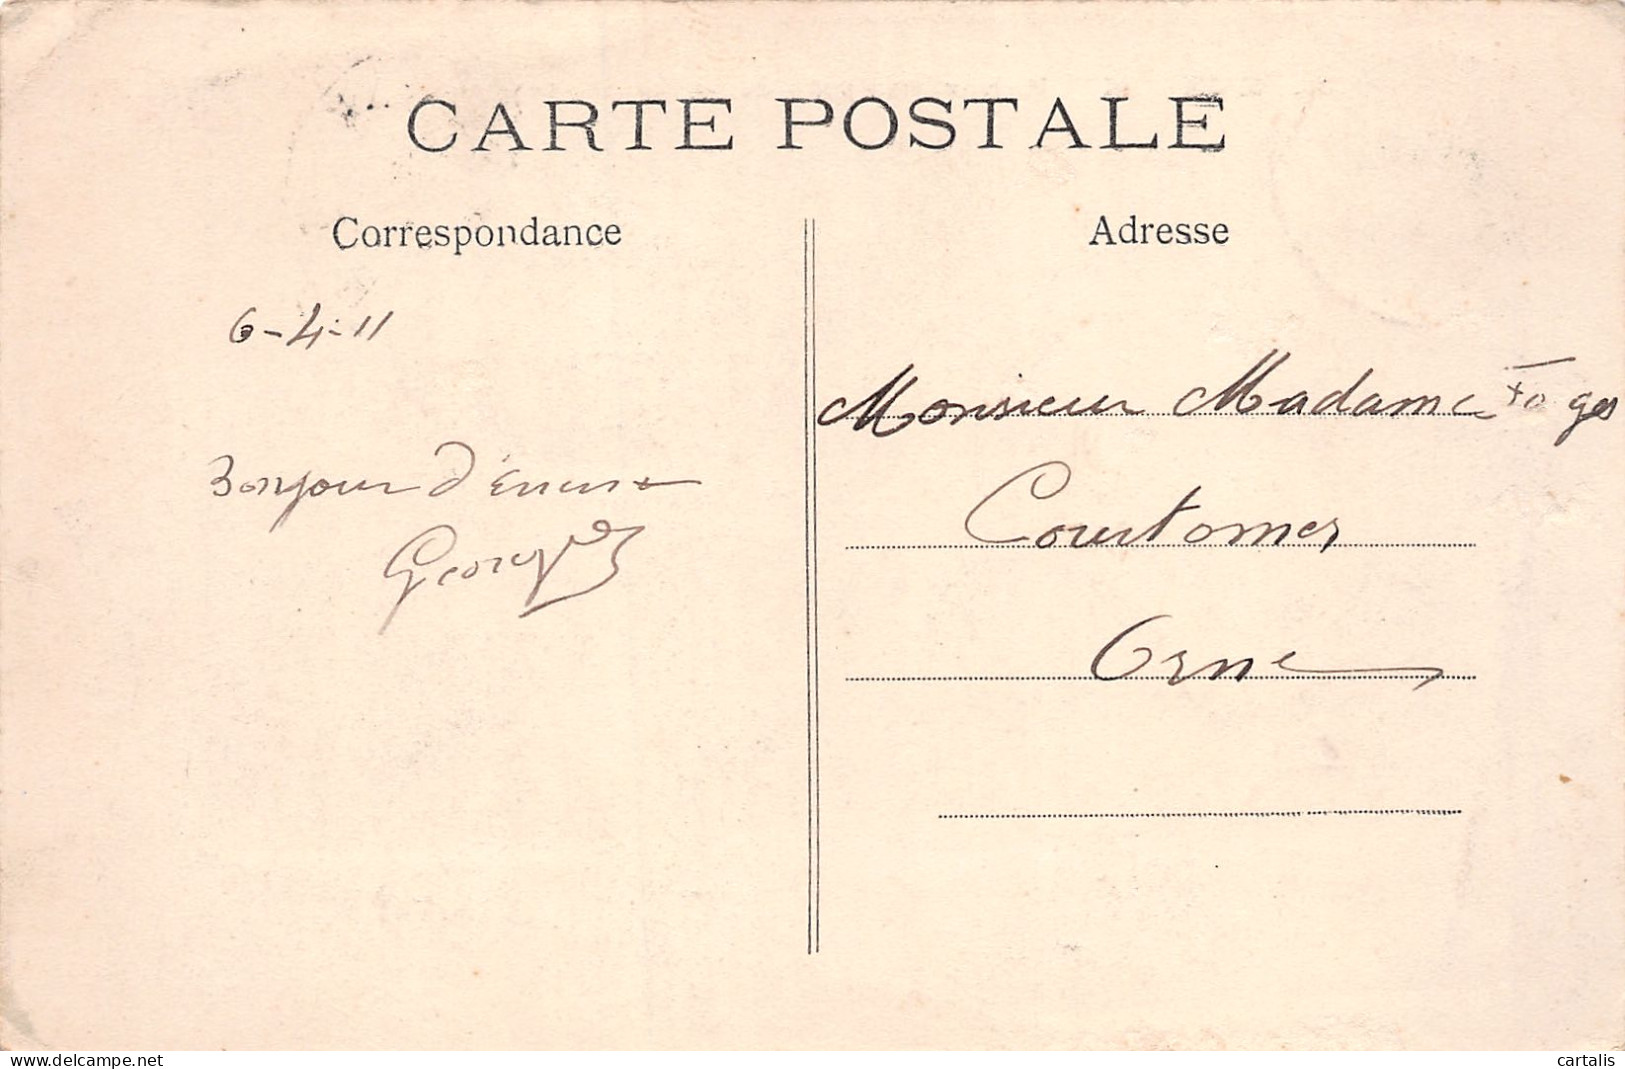 CARTE POSTALE
Correspondance
Adresse
6-4-11
Bonjour d'
Georges
Monsieur Madame Forges
Courtomer
Orne
delcampe.net
cartalis